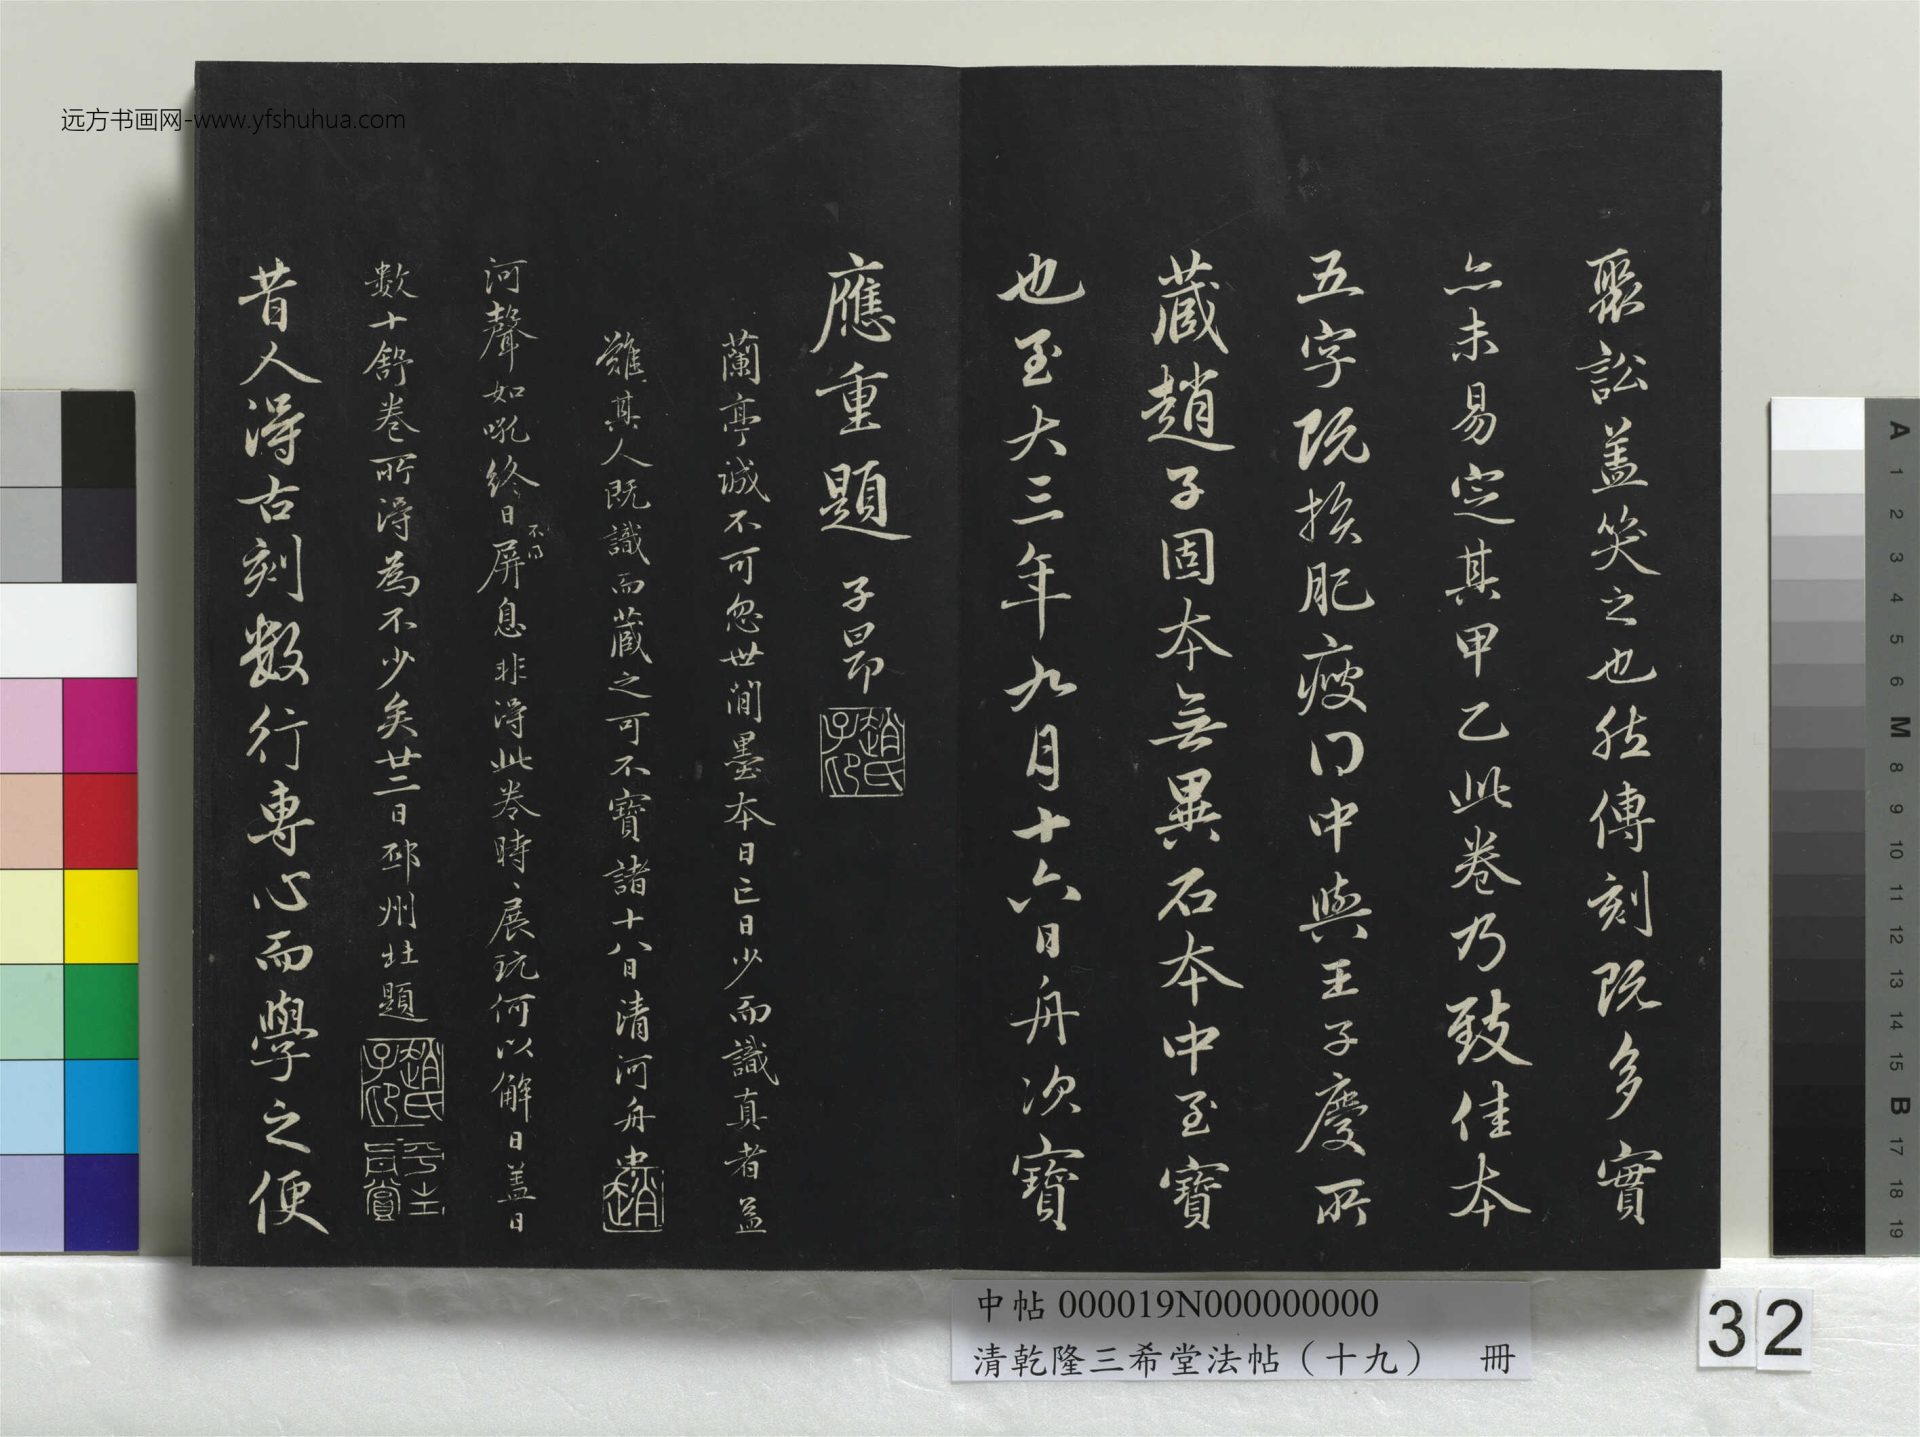 远方书画网-www.yfshuhua.com
聚訟蓋笑之也然傳刻既多實
亦未易定其甲乙此卷乃致佳本
五字既損肥瘦同中與王子慶所
藏趙子固本無異石本中至寶
也至大三年九月十六日舟次寶
應重題 子昂
趙氏子印
蘭亭誠不可忽世間墨本日亡日少而識真者益
難其人既識而藏之可不寶諸十八日清河舟中
趙
河聲如吼終日屏息非得此卷時展玩何以解日蓋日
不得
數十舒卷所得為不少矣廿二日邳州北題
趙氏子印
昔人得古刻數行專心而學之便
中帖 000019N000000000
清乾隆三希堂法帖（十九） 冊
32
A 1 2 3 4 5 6 M 8 9 10 11 12 13 14 15 B 17 18 19